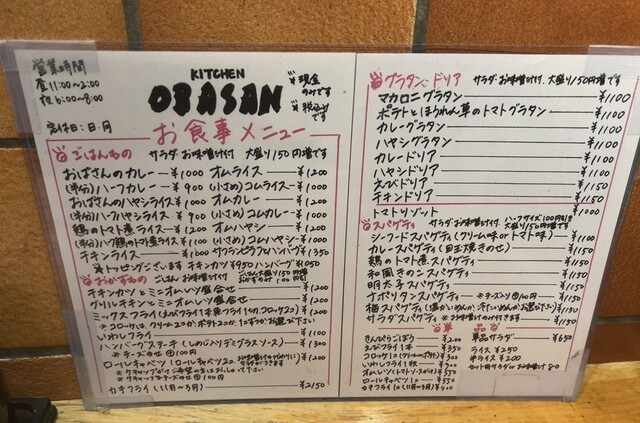 営業時間
昼11:00~2:00
夜6:00~8:00
定休日:日・月
KITCHEN
OBASAN
現金
のみです
税込み
です
お食事メニュー
ごはんもの サラダ・お味噌汁付 大盛り150円増です
おばさんのカレー ¥1000
(半分)ハーフカレー ¥900
おばさんのハヤシライス ¥1000
(半分)ハーフハヤシライス ¥900
鶏のトマト煮ライス ¥1200
(半分)ハーフ鶏のトマト煮ライス ¥1100
チキンライス ¥1000
オムライス ¥1200
(小さめ)コムライス ¥1000
オムカレー ¥1200
(小さめ)コムカレー ¥1000
オムハヤシ ¥1200
(小さめ)コムハヤシ ¥1000
サフランピラフとハンバーグ ¥1350
トッピングございます チキンカツ¥950 ハンバーグ¥1050
おかずもの ごはん お味噌汁付
ごはん大盛り150円増
おかずのみ 100円引
チキンカツとミニオムレツ盛合せ ¥1200
グリルチキンとミニオムレツ盛合せ ¥1200
ミックスフライ(えびフライ1本 魚フライ1ケ コロッケ1ケ) ¥1200
いわしフライ ¥1100
ハンバーグステーキ(しめじ入りデミグラスソース) ¥1300
*チーズのせ 100円
ロールキャベツ(ロールキャベツ2ケ) ¥1200
カキフライ(11月~3月) ¥2150
グラタン・ドリア サラダ・お味噌汁付 大盛り150円増です
マカロニグラタン ¥1100
ポテトとほうれん草のトマトグラタン ¥1100
カレーグラタン ¥1100
ハヤシグラタン ¥1100
カレードリア ¥1100
ハヤシドリア ¥1100
えびドリア ¥1150
チキンドリア ¥1150
トマトリゾット ¥1000
スパゲティ サラダ・お味噌汁付 ハーフサイズ100円引き 大盛り150円増です
シーフードスパゲティ(クリーム味orトマト味) ¥1100
カレースパゲティ(目玉焼きのせ) ¥1150
鶏のトマト煮スパゲティ ¥1150
和風きのこスパゲティ ¥1150
明太子スパゲティ ¥1150
ナポリタンスパゲティ *チーズのせ100円 ¥1150
梅スパゲティ(温かいめんか冷たいめんかお選び下さい) ¥1150
サラダスパゲティ *お味噌汁のみ付きます ¥1150
単品
きんぴらごぼう ¥200
えびフライ1本 ¥350
いわしフライ1枚 ¥300
オムレツ(トマトソースがけ) ¥550
ロールキャベツ1ケ ¥550
カキフライ1ケ(11月~3月) ¥400
単品サラダ ¥500
ライス ¥250
半ライス ¥200